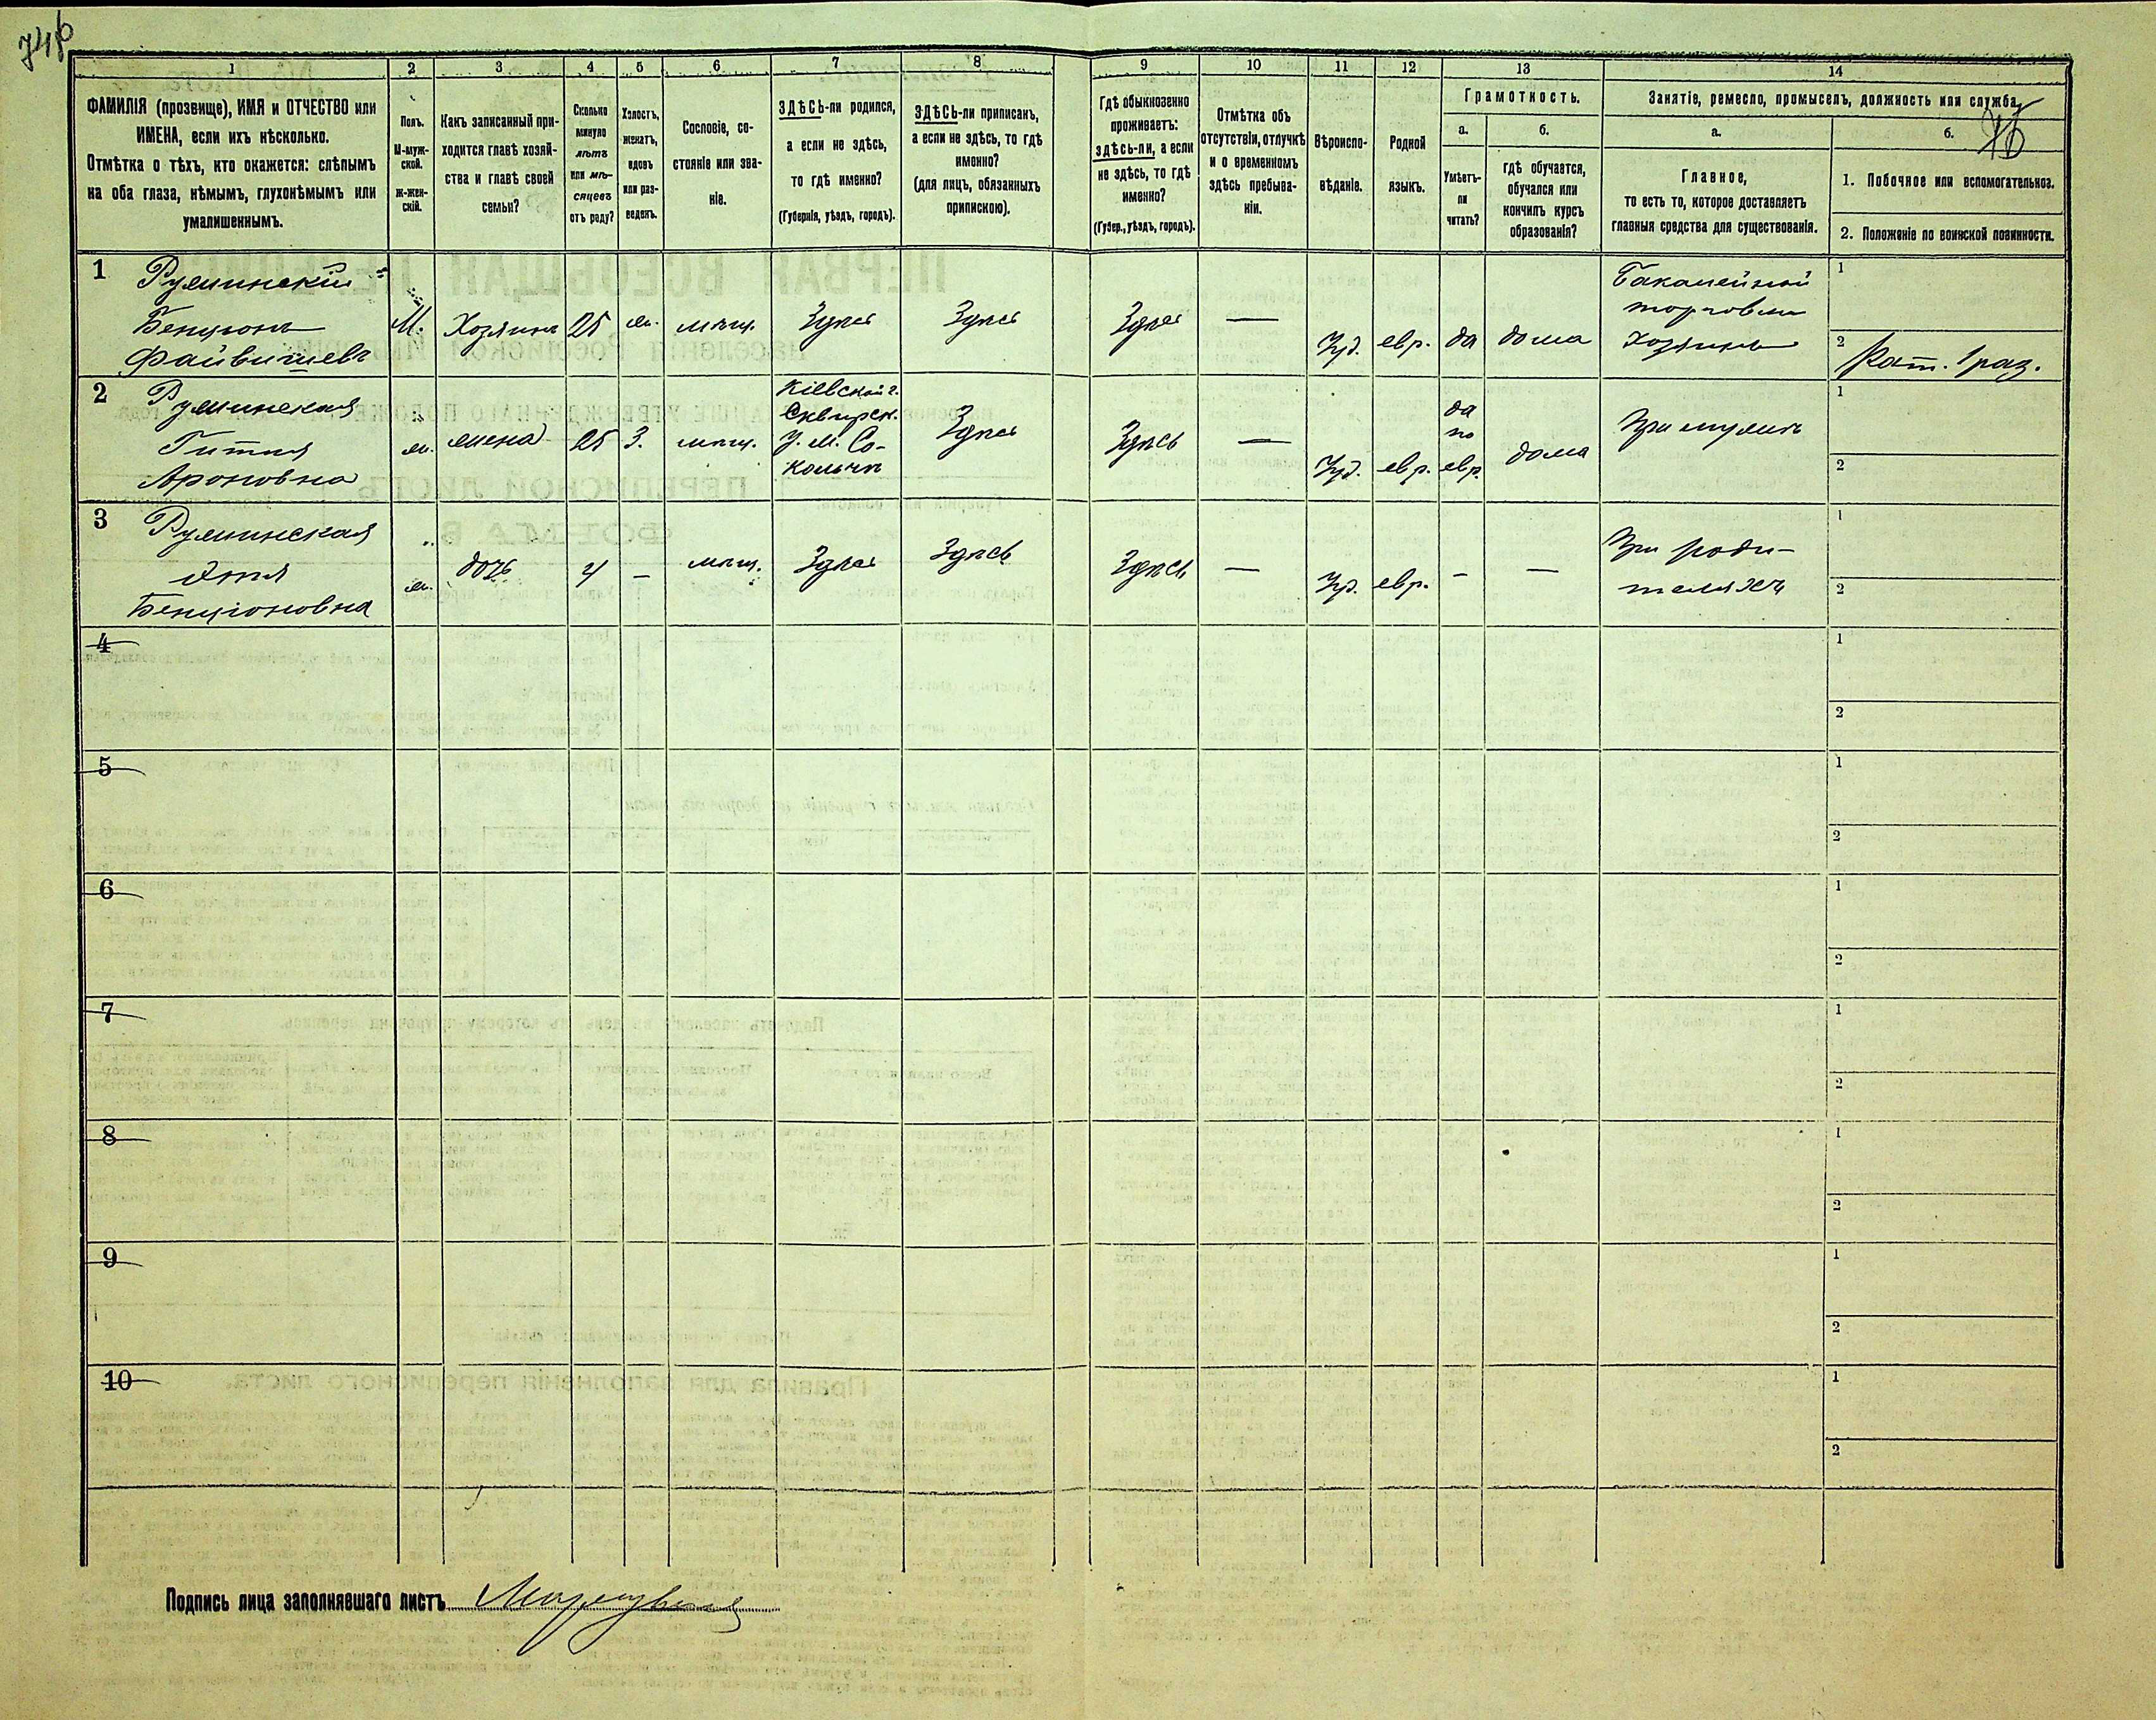 746
1 2 3 4 5 6 7 8 9 10 11 12 13 14
ФАМИЛІЯ (прозвище), ИМЯ и ОТЧЕСТВО или
ИМЕНА, если ихъ нѣсколько.
Отмѣтка о тѣхъ, кто окажется: слѣпымъ
на оба глаза, нѣмымъ, глухонѣмымъ или
умалишеннымъ.
Полъ.
М-муж-
ской.
Ж-жен-
скій.
Какъ записанный при-
ходится главѣ хозяй-
ства и главѣ своей
семьи?
Сколько
минуло
лѣтъ
или мѣ-
сяцевъ
отъ роду?
Холостъ,
женатъ,
вдовъ
или раз-
веденъ.
Сословіе, со-
стояніе или зва-
ніе.
ЗДѢСЬ-ли родился,
а если не здѣсь,
то гдѣ именно?
(Губернія, уѣздъ, городъ).
ЗДѢСЬ-ли приписанъ,
а если не здѣсь, то гдѣ
именно?
(для лицъ, обязанныхъ
припискою).
Гдѣ обыкновенно
проживаетъ:
здѣсь-ли, а если
не здѣсь, то гдѣ
именно?
(Губер., уѣздъ, городъ).
Отмѣтка объ
отсутствіи, отлучкѣ
и о временномъ
здѣсь пребыва-
ніи.
Вѣроиспо-
вѣданіе.
Родной
языкъ.
Грамотность.
а.
Умѣетъ-
ли
читать?
б.
гдѣ обучается,
обучался или
кончилъ курсъ
образованія?
Занятіе, ремесло, промыселъ, должность или служба
а.
Главное,
то есть то, которое доставляетъ
главныя средства для существованія.
б.
1. Побочное или вспомогательное.
2. Положеніе по воинской повинности.
1
Румынскій
Бенціонъ
Файвишевъ
М.
Хозяинъ
25
ж.
мѣщ.
Здѣсь
Здѣсь
Здѣсь
—
Іуд.
евр.
да
дома
Бакалейной
торговли
Хозяинъ
1
2
Рат. 1 раз.
2
Румынская
Гитля
Ароновна
ж.
жена
25
З.
мѣщ.
Кіевской г.
Сквирск.
У. М. Со-
Здѣсь
Здѣсь
—
Іуд.
евр.
да
по
евр.
дома
При мужѣ
1
2
3
Румынская
Бенціоновна
ж.
дочь
4
—
мѣщ.
Здѣсь
Здѣсь
Здѣсь
—
Іуд.
евр.
—
—
При роди-
теляхъ
1
2
4
1
2
5
1
2
6
1
2
7
1
2
8
1
2
9
1
2
10
1
2
Подпись лица заполнявшаго листъ